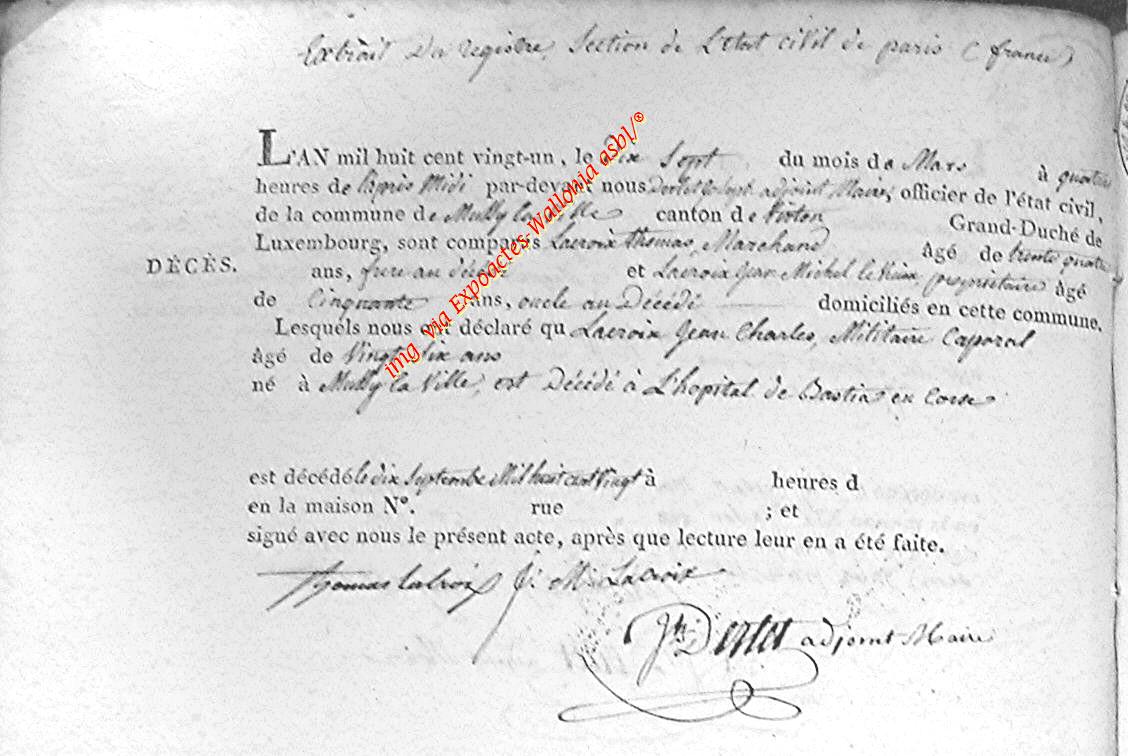 Extrait du registre, Section de L'etat civil de paris (france)
L'AN mil huit cent vingt-un, le Dix Sept du mois de Mars à quatre
heures de l'après Midi par-devant nous adjoint Maire, officier de l'état civil,
de la commune de Mussy la Ville canton de Virton Grand-Duché de
Luxembourg, sont comparus Lacroix Thomas, Marchand âgé de trente quatre
DÉCÈS.
ans, frere au décédé et Lacroix Jean Michel le Vieux, propriétaire âgé
de Cinquante ans, oncle au Décédé domiciliés en cette commune.
Lesquels nous ont déclaré qu Lacroix Jean Charles, Militaire Caporal
âgé de Vingt Six ans
né à Mussy la Ville, est Décédé à L'hopital de Bastia en Corse
est décédé le dix Septembre Mil huit cent Vingt à heures d
en la maison N°. rue ; et
signé avec nous le présent acte, après que lecture leur en a été faite.
Thomas Lacroix J: M: Lacroix
adjoint Maire
img via Expoactes-Wallonia asbl/®